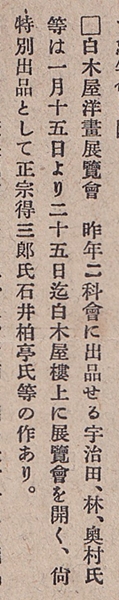 □白木屋洋畫展覽會　昨年二科會に出品せる宇治田、林、奥村氏
等は一月十五日より二十五日迄白木屋樓上に展覽會を開く、尙
特別出品として正宗得三郎氏石井柏亭氏等の作あり。